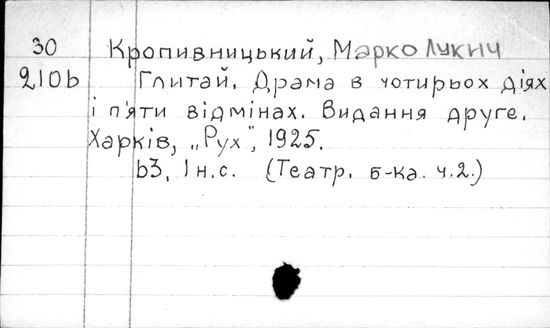 30 Кропивницький, Марко Лукич
210b Глитай. Драма в чотирьох діях
і п'яти відмінах. Видання друге.
Харків, „Рух", 1925.
63, 1 н.с. (Театр. б-ка. ч.2.)